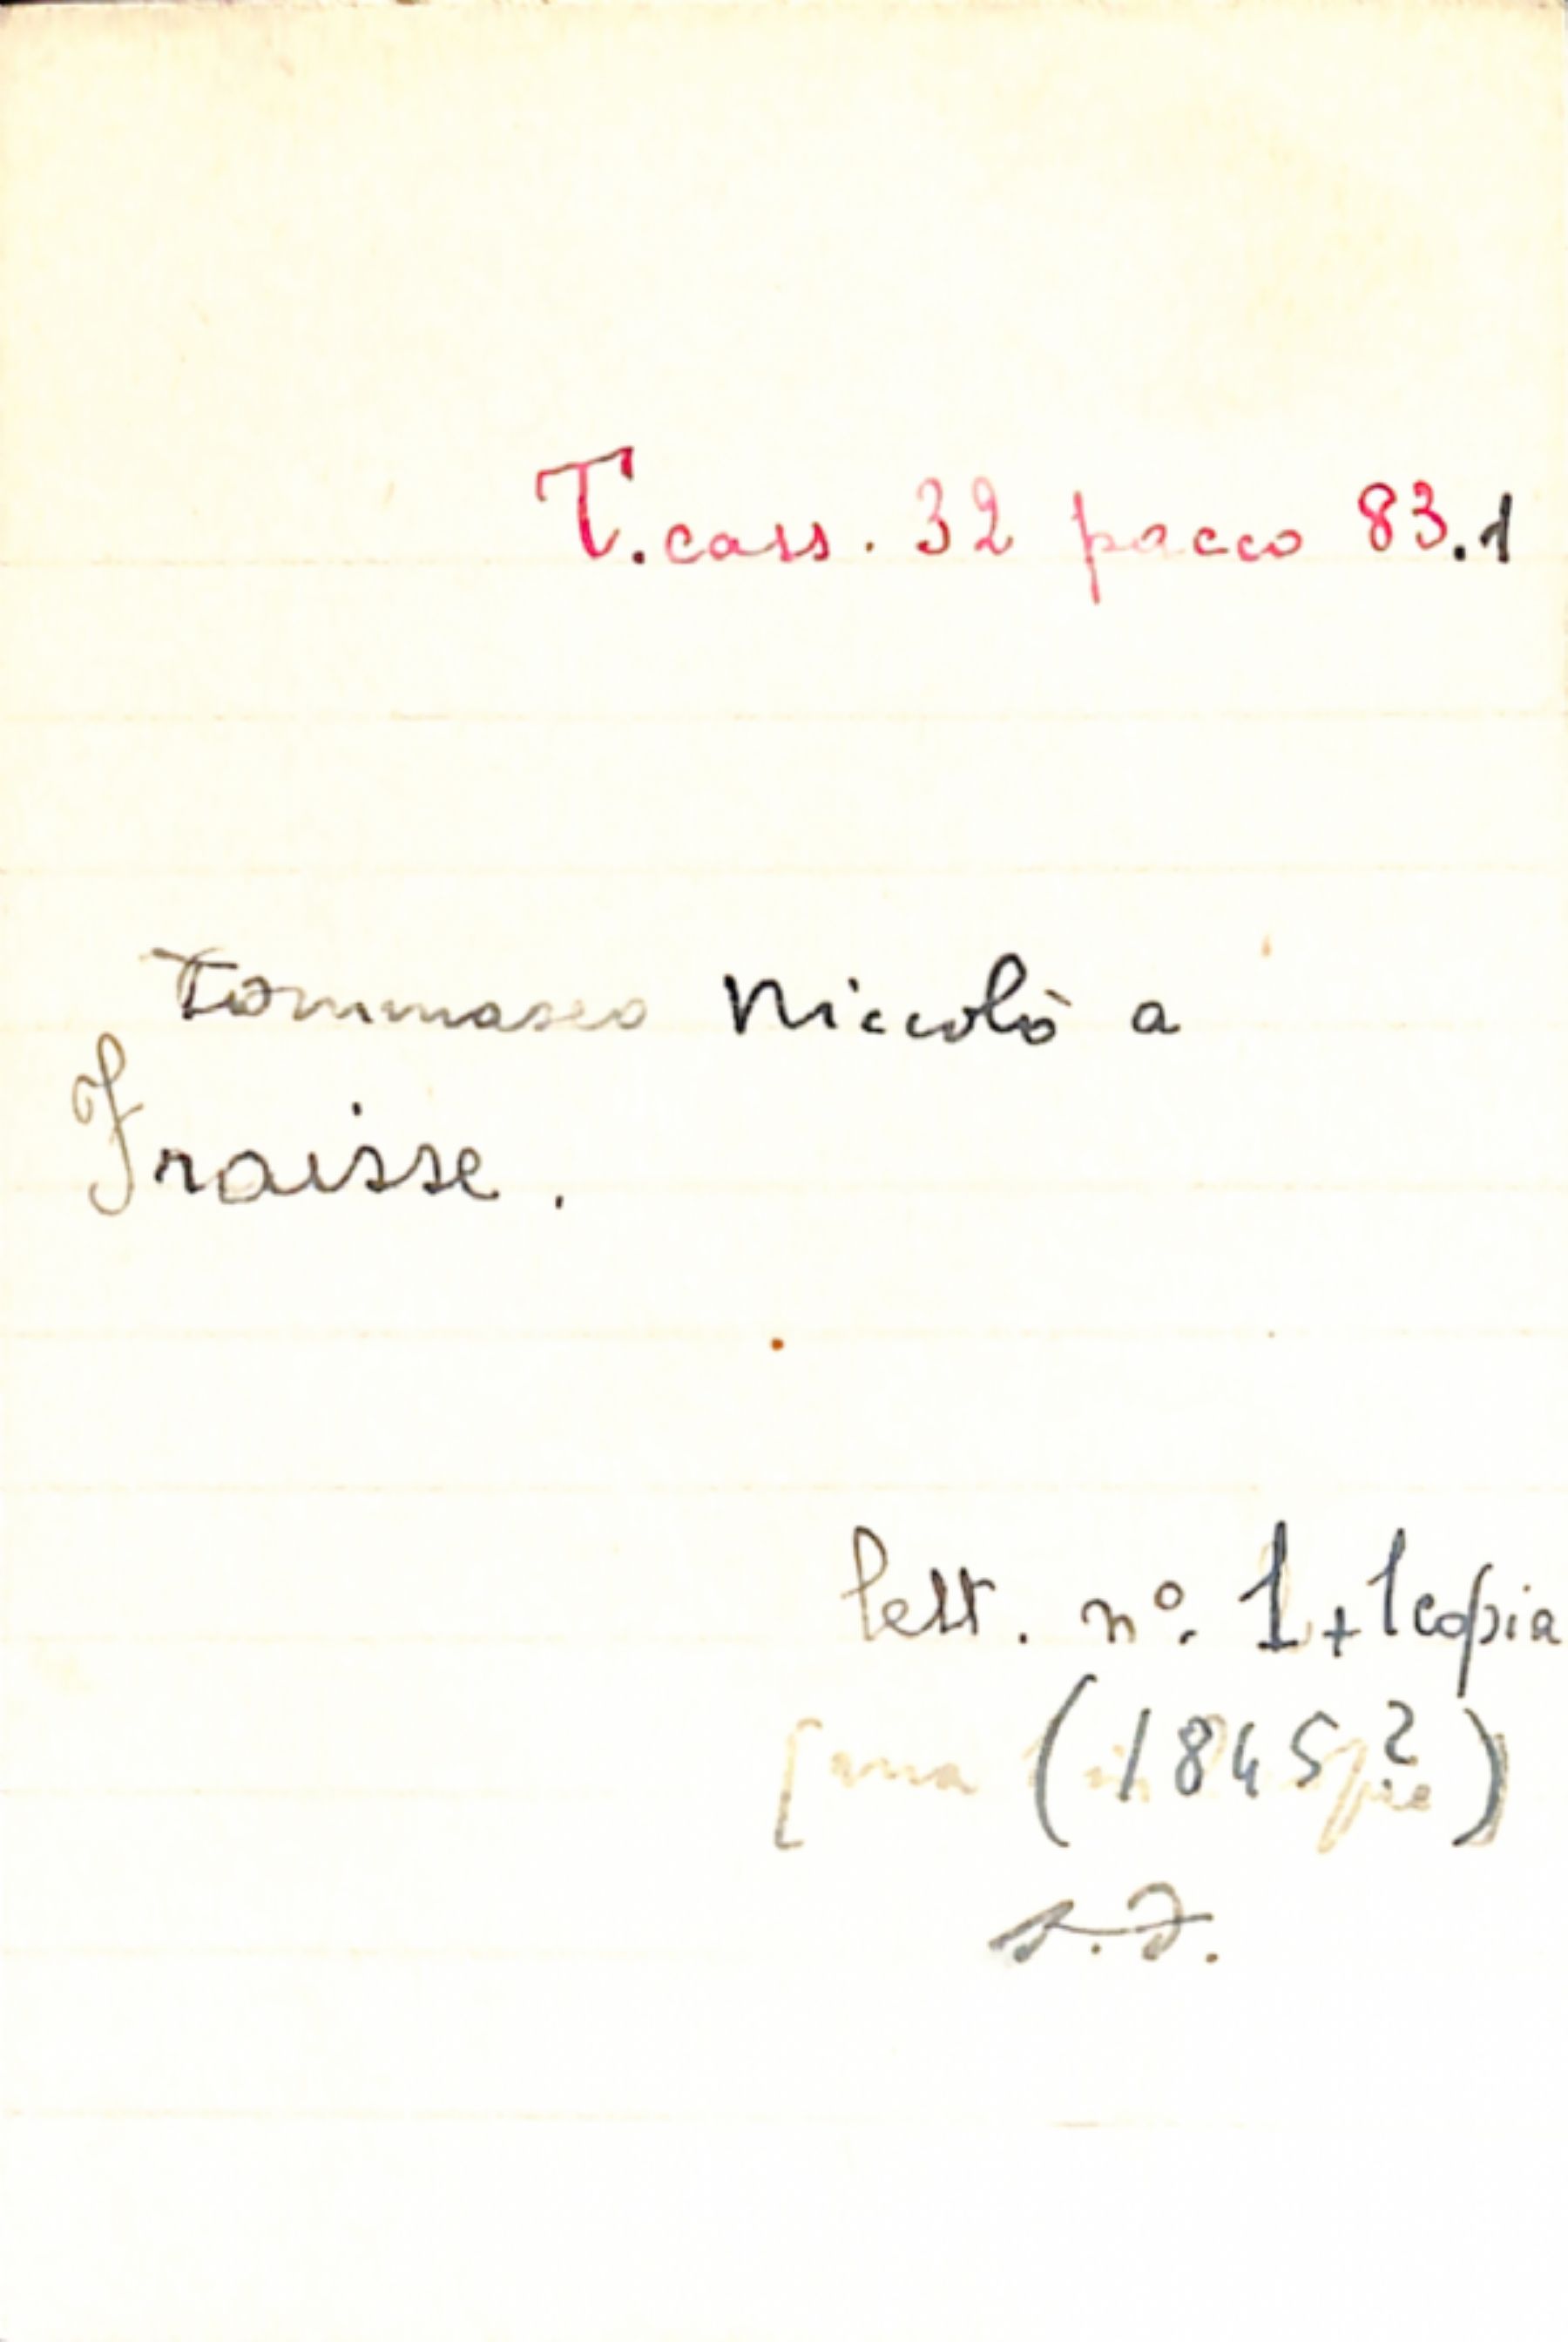 T. cass. 32 pacco 83.1
Tommaseo Niccolò a
Fraisse.
lett. n°. 1 + 1 copia
(1845?)
s.d.